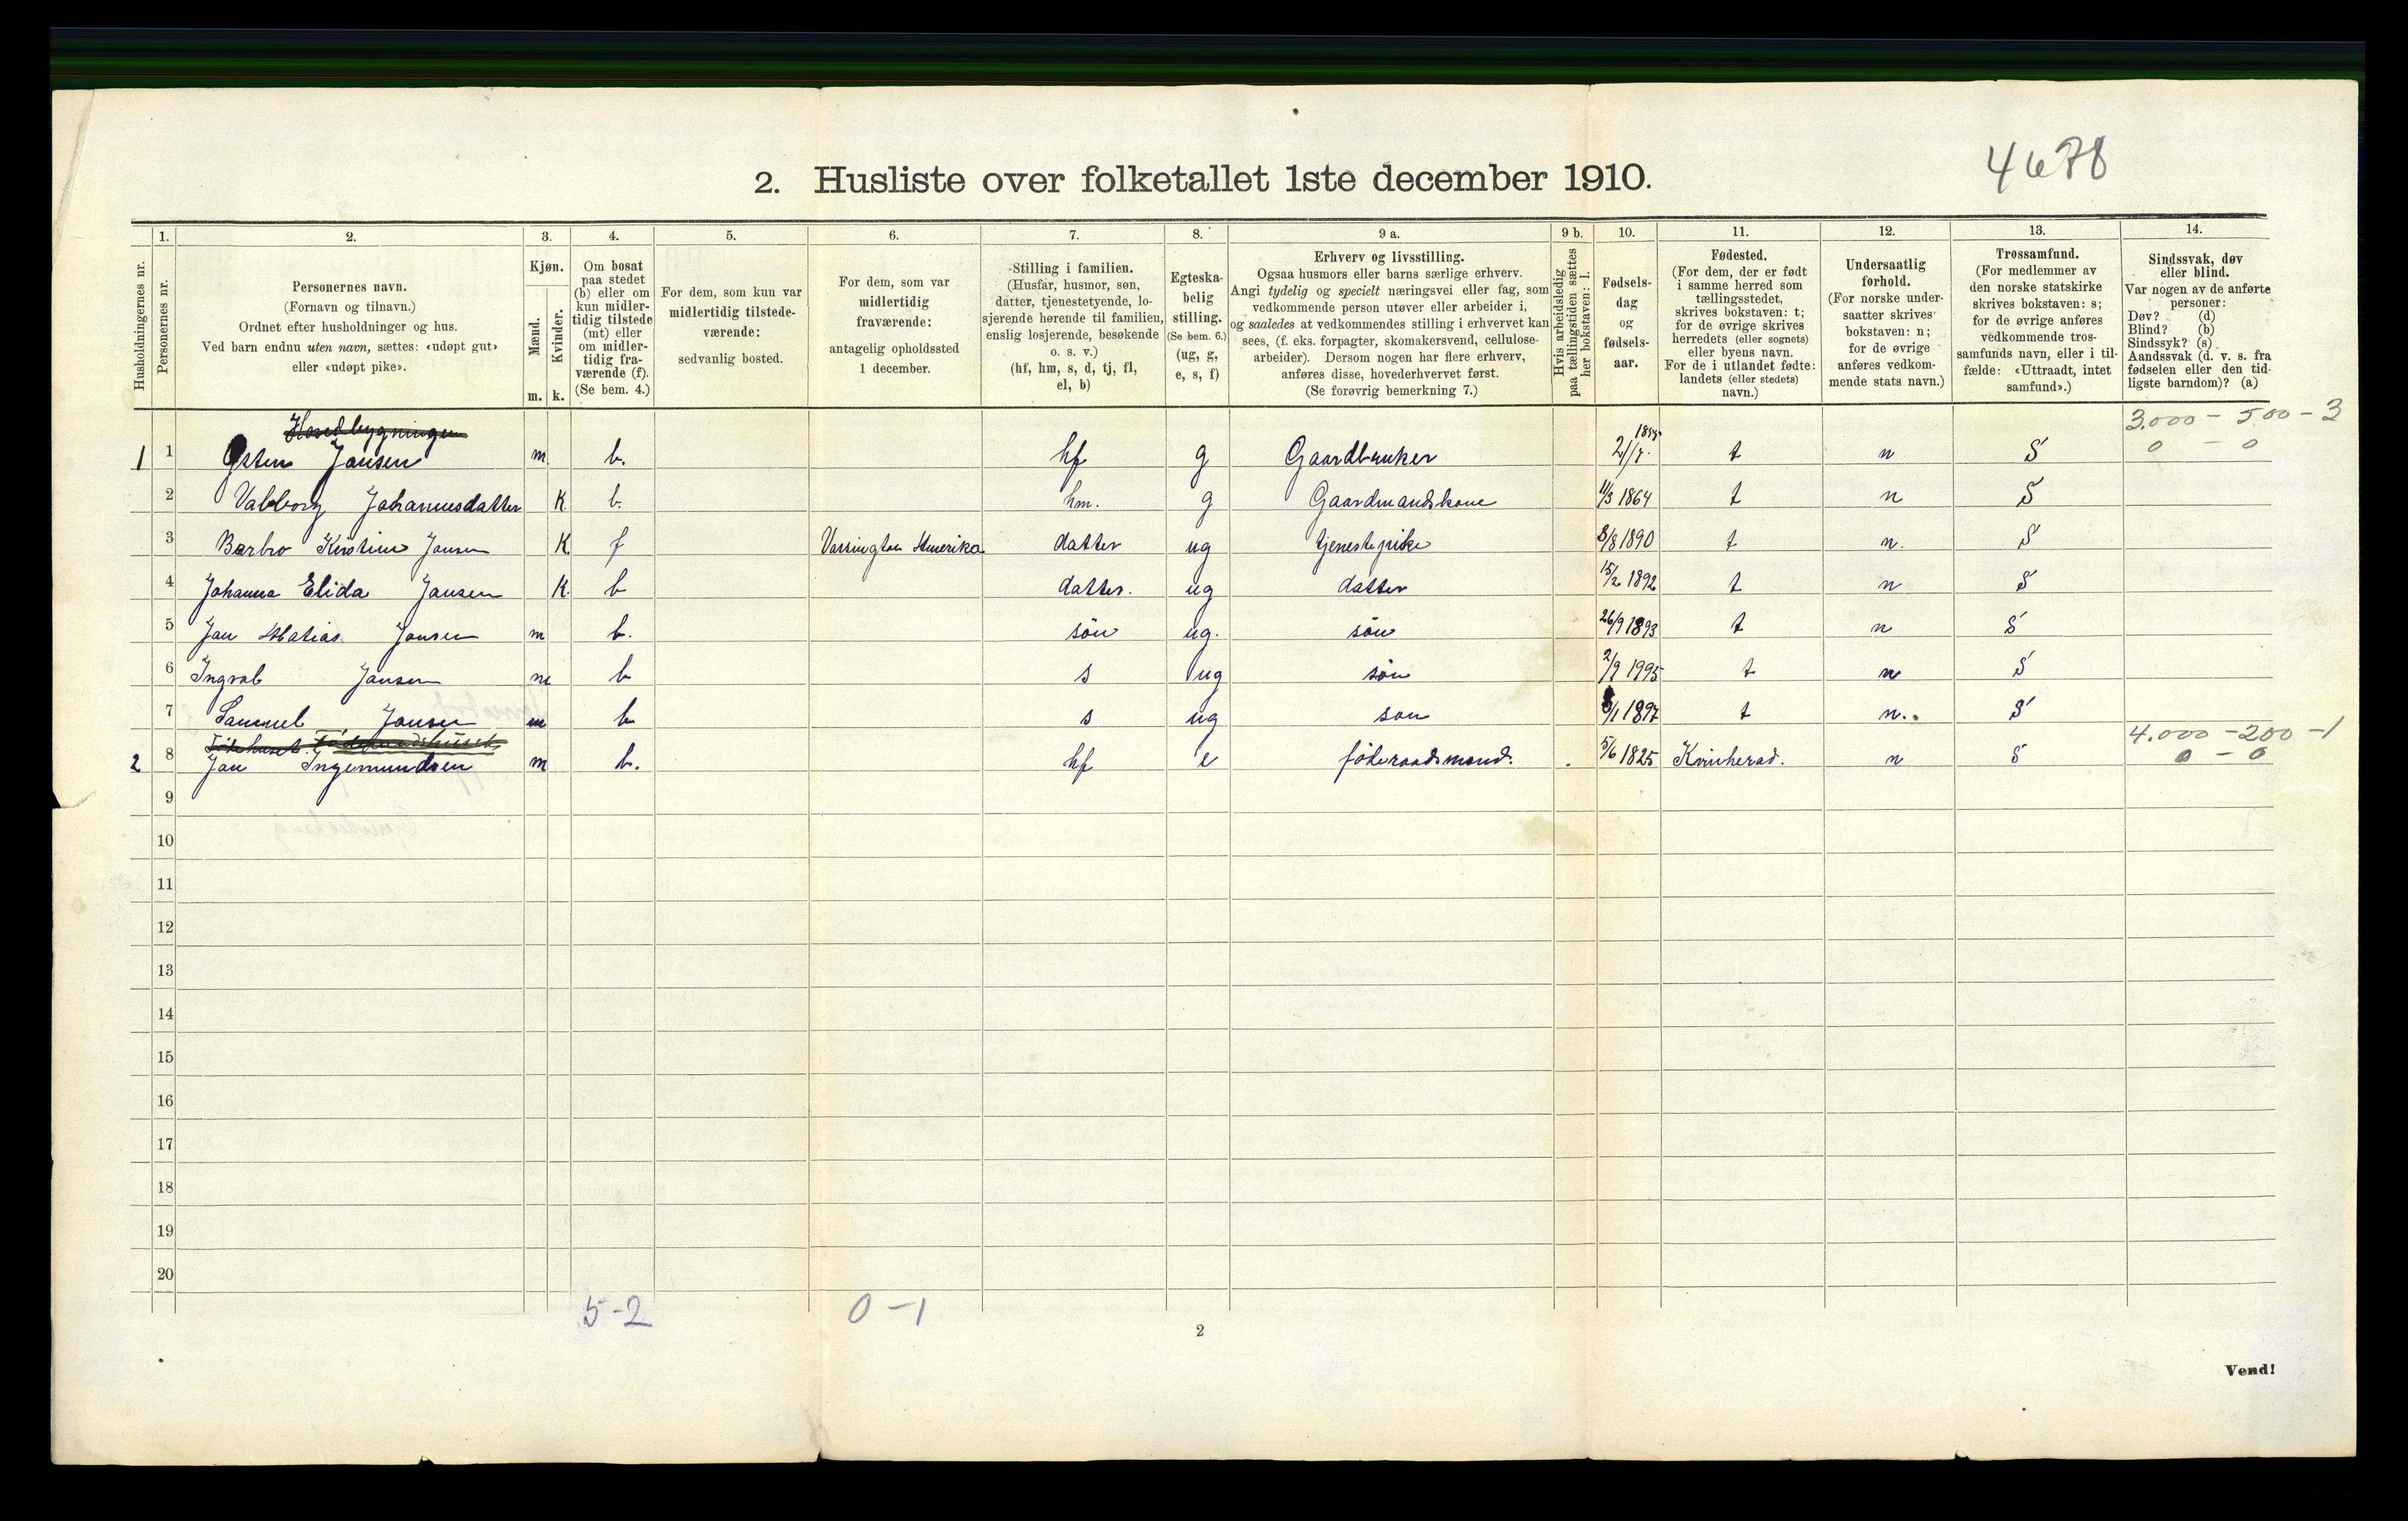 4678
2. Husliste over folketallet 1ste december 1910.
Husholdningernes nr.
1. Personernes nr.
2. Personernes navn.
(Fornavn og tilnavn.)
Ordnet efter husholdninger og hus.
Ved barn endnu uten navn, sættes: «udøpt gut»
eller «udøpt pike».
3. Kjøn.
Mænd. m.
Kvinder. k.
4. Om bosat
paa stedet
(b) eller om
kun midler-
tidig tilstede
(mt) eller
om midler-
tidig fra-
værende (f).
(Se bem. 4.)
5. For dem, som kun var
midlertidig tilstede-
værende:
sedvanlig bosted.
6. For dem, som var
midlertidig
fraværende:
antagelig opholdssted
1 december.
7. Stilling i familien.
(Husfar, husmor, søn,
datter, tjenestetyende, lo-
sjerende hørende til familien,
enslig losjerende, besøkende
o. s. v.)
(hf, hm, s, d, tj, fl,
el, b)
8. Egteska-
belig
stilling.
(Se bem. 6.)
(ug, g,
e, s, f)
9 a. Erhverv og livsstilling.
Ogsaa husmors eller barns særlige erhverv.
Angi tydelig og specielt næringsvei eller fag, som
vedkommende person utøver eller arbeider i,
og saaledes at vedkommendes stilling i erhvervet kan
sees, (f. eks. forpagter, skomakersvend, cellulose-
arbeider). Dersom nogen har flere erhverv,
anføres disse, hovederhvervet først.
(Se forøvrig bemerkning 7.)
9 b. Hvis arbeidsledig
paa tællingstiden sættes
her bokstaven: l.
10. Fødsels-
dag
og
fødsels-
aar.
11. Fødested.
(For dem, der er født
i samme herred som
tællingsstedet,
skrives bokstaven: t;
for de øvrige skrives
herredets (eller sognets)
eller byens navn.
For de i utlandet fødte:
landets (eller stedets)
navn.)
12. Undersaatlig
forhold.
(For norske under-
saatter skrives
bokstaven: n;
for de øvrige
anføres vedkom-
mende stats navn.)
13. Trossamfund.
(For medlemmer av
den norske statskirke
skrives bokstaven: s;
for de øvrige anføres
vedkommende tros-
samfunds navn, eller i til-
fælde: «Uttraadt, intet
samfund».)
14. Sindssvak, døv
eller blind.
Var nogen av de anførte
personer:
Døv? (d)
Blind? (b)
Sindssyk? (s)
Aandssvak (d. v. s. fra
fødselen eller den tid-
ligste barndom)? (a)
Hovedbygningen 3.000 - 500 - 3
1 1 Østen Jansen m b. hf g Gaardbruker 2/7 t n S 0 - 0
2 Valborg Johannesdatter K. b. hm. g Gaardmandskone 11/3 1864 t n S
3 Barbro Kirstine Jansen K f Vassington Amerika datter ug tjenestepike 3/8 1890 t n. S
4 Johanna Elida Jansen K. b datter. ug datter 15/2 1892 t n S
5 Jan Matias Jansen m b. søn ug. søn 26/9 1893 t n S
6 Ingvab Jansen m b s ug søn 2/9 1995 t n S
7 Samuel Jansen m b s ug son /1 1897 t n. S
4.000 - 200 - 1
2 8 Jan Ingemundsen m b. hf e føderaadsmand. 5/6 1825 Kvinherad. n S 0 - 0
9
10
11
12
13
14
15
16
17
18
19
20
5-2 0-1
2
Vend!